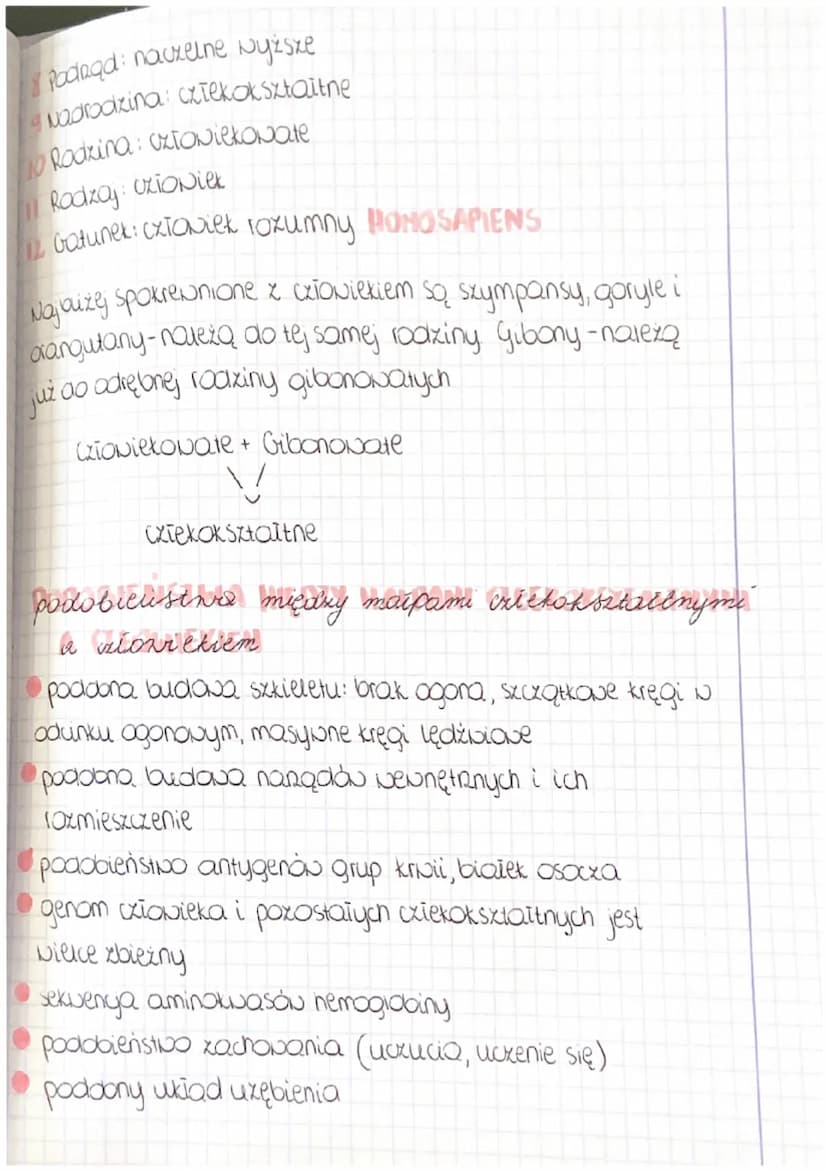 8 Podrząd: naczelne wyższe
9 Nadrodzina: człekokształtne
10 Rodzina: człowiekowate
11 Rodzaj: człowiek
12 Gatunek: człowiek rozumny HOMOSAPIENS
Najbliżej spokrewnione z człowiekiem są szympansy, goryle i
orangutany-należą do tej samej rodziny Gibony-należą
już do odrębnej rodziny gibonowatych
Człowiekowate + Gibonowate
człekokształtne
podobieństwa między małpami człekokształtnymi
a człowiekiem
podobna budowa szkieletu: brak ogona, szczątkowe kręgi w
odcinku ogonowym, masywne kręgi lędźwiowe
podobna budowa narządów wewnętrznych i ich
rozmieszczenie
podobieństwo antygenów grup krwii, białek osocza
genom człowieka i pozostałych człekokształtnych jest
wielce zbieżny
sekwencja aminokwasów hemoglobiny
podobieństwo zachowania (uczucia, uczenie się)
podobny układ uzębienia